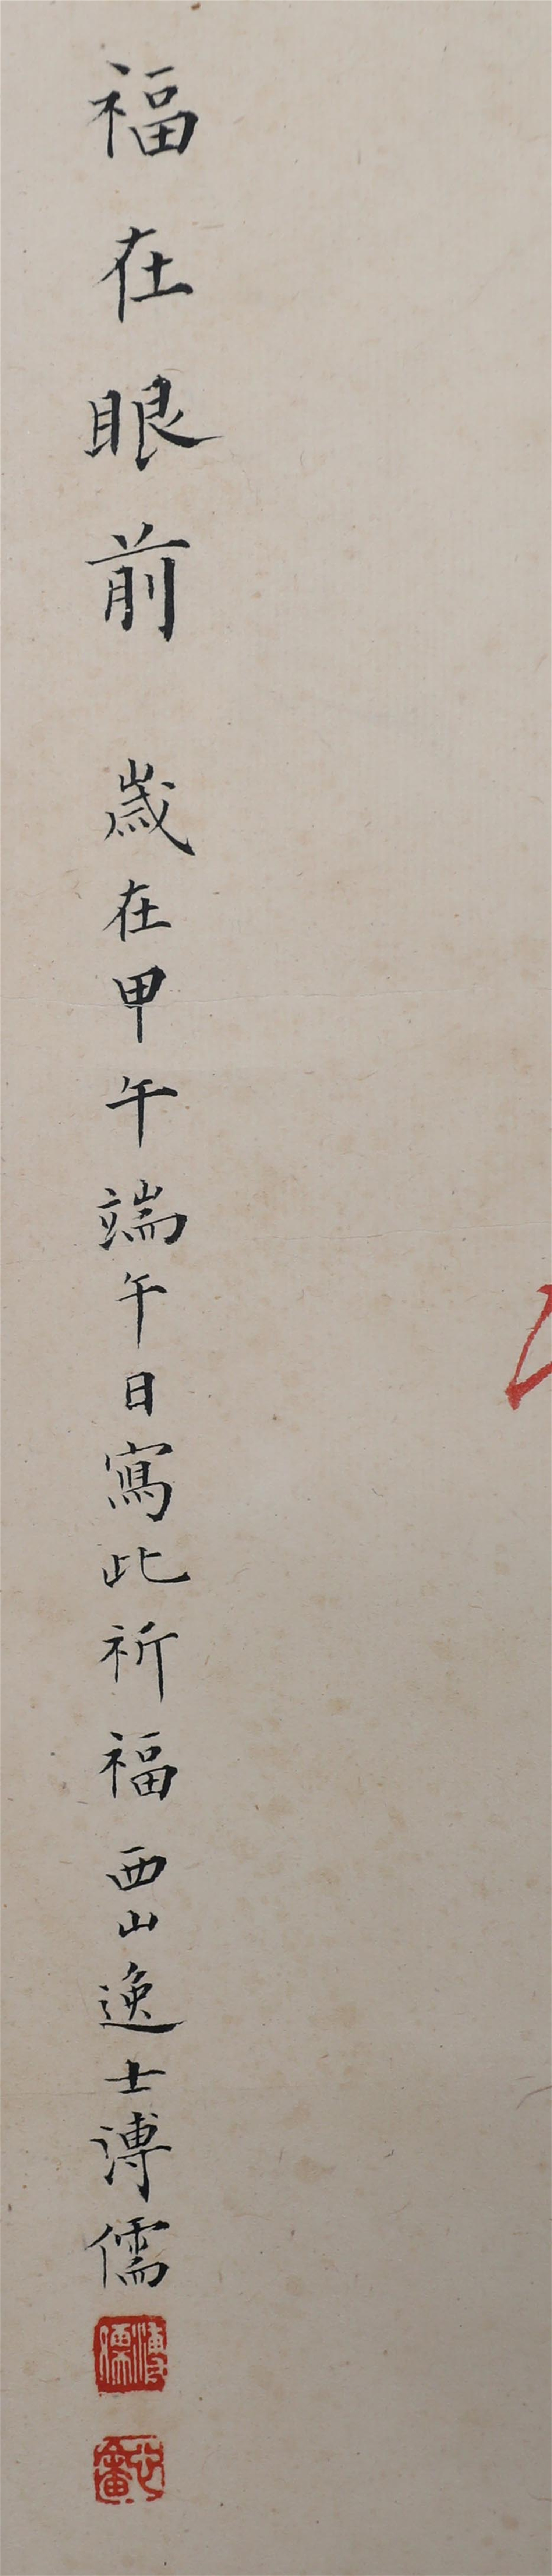 福在眼前 歲在甲午端午日寫此祈福 西山逸士溥儒
溥儒